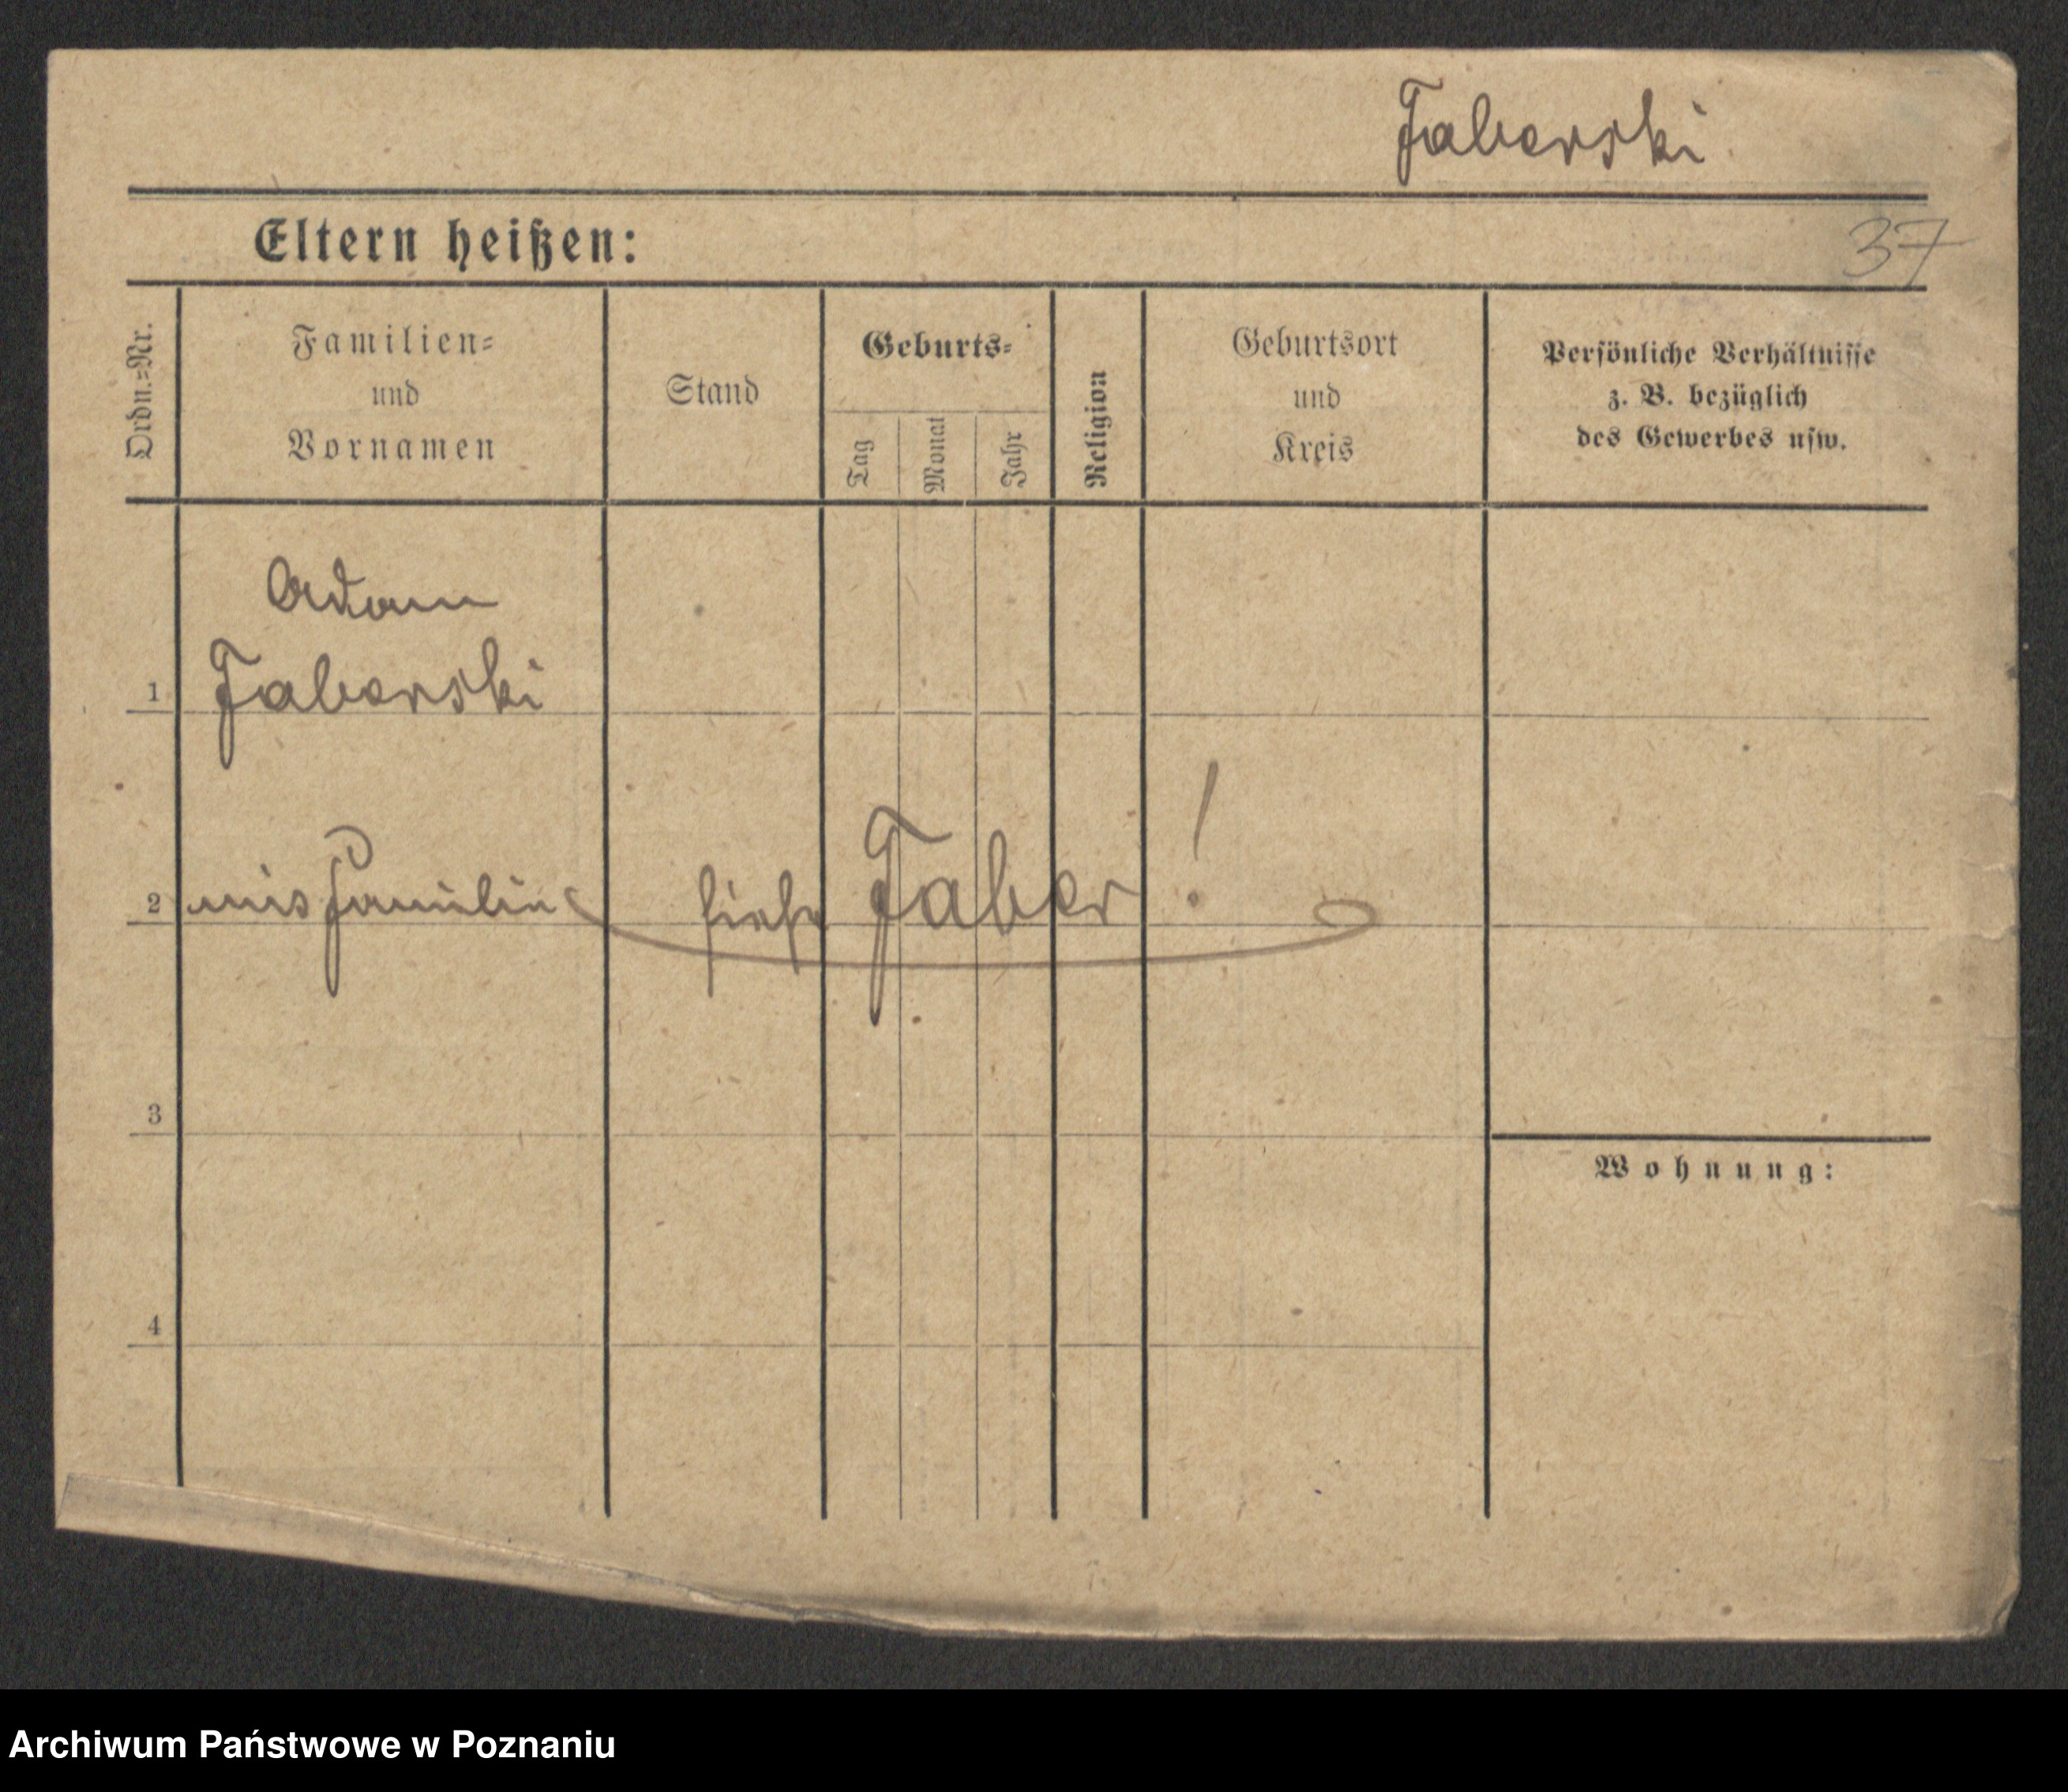 Faberski
Eltern heißen:
37
Ordn.=Nr.
Familien=
und
Vornamen
Stand
Geburts=
Tag
Monat
Jahr
Religion
Geburtsort
und
Kreis
Persönliche Verhältnisse
z. B. bezüglich
des Gewerbes usw.
Adam
1 Faberski
2 Familie siehe Faber!
3
Wohnung:
4
Archiwum Państwowe w Poznaniu